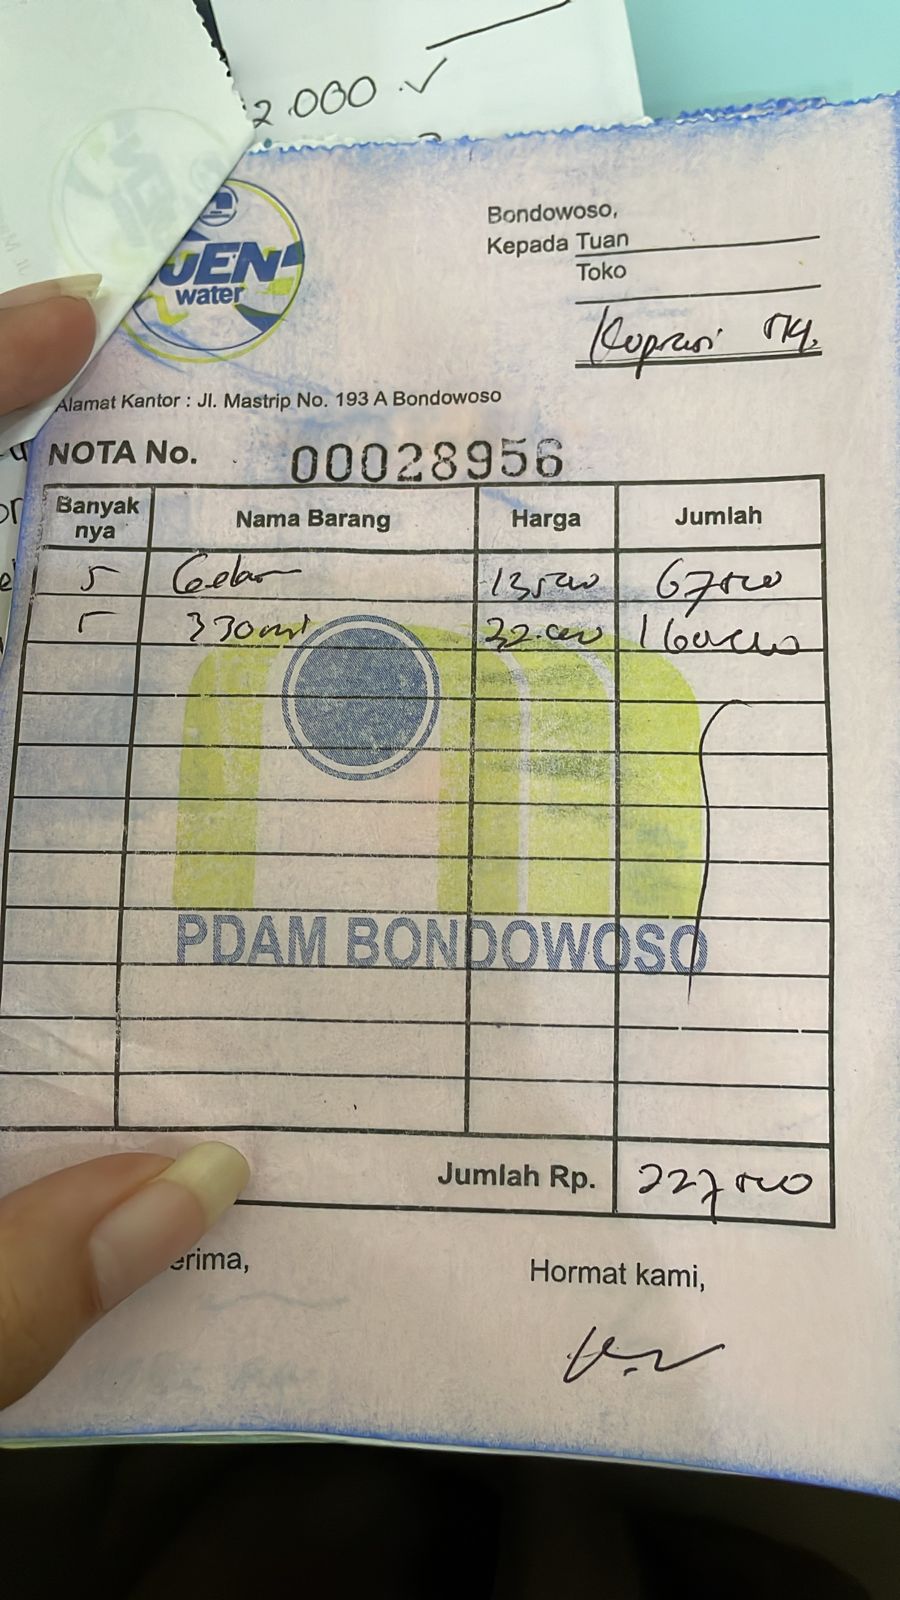 2.000 ✓
JEN
water
Bondowoso,
Kepada Tuan
Toko
Koprasi
Alamat Kantor : Jl. Mastrip No. 193 A Bondowoso
NOTA No. 00028956
Banyak nya Nama Barang Harga Jumlah
5 Gelas 13500 67500
5 330ml 32.000 160000
PDAM BONDOWOSO
Jumlah Rp. 227500
erima,
Hormat kami,